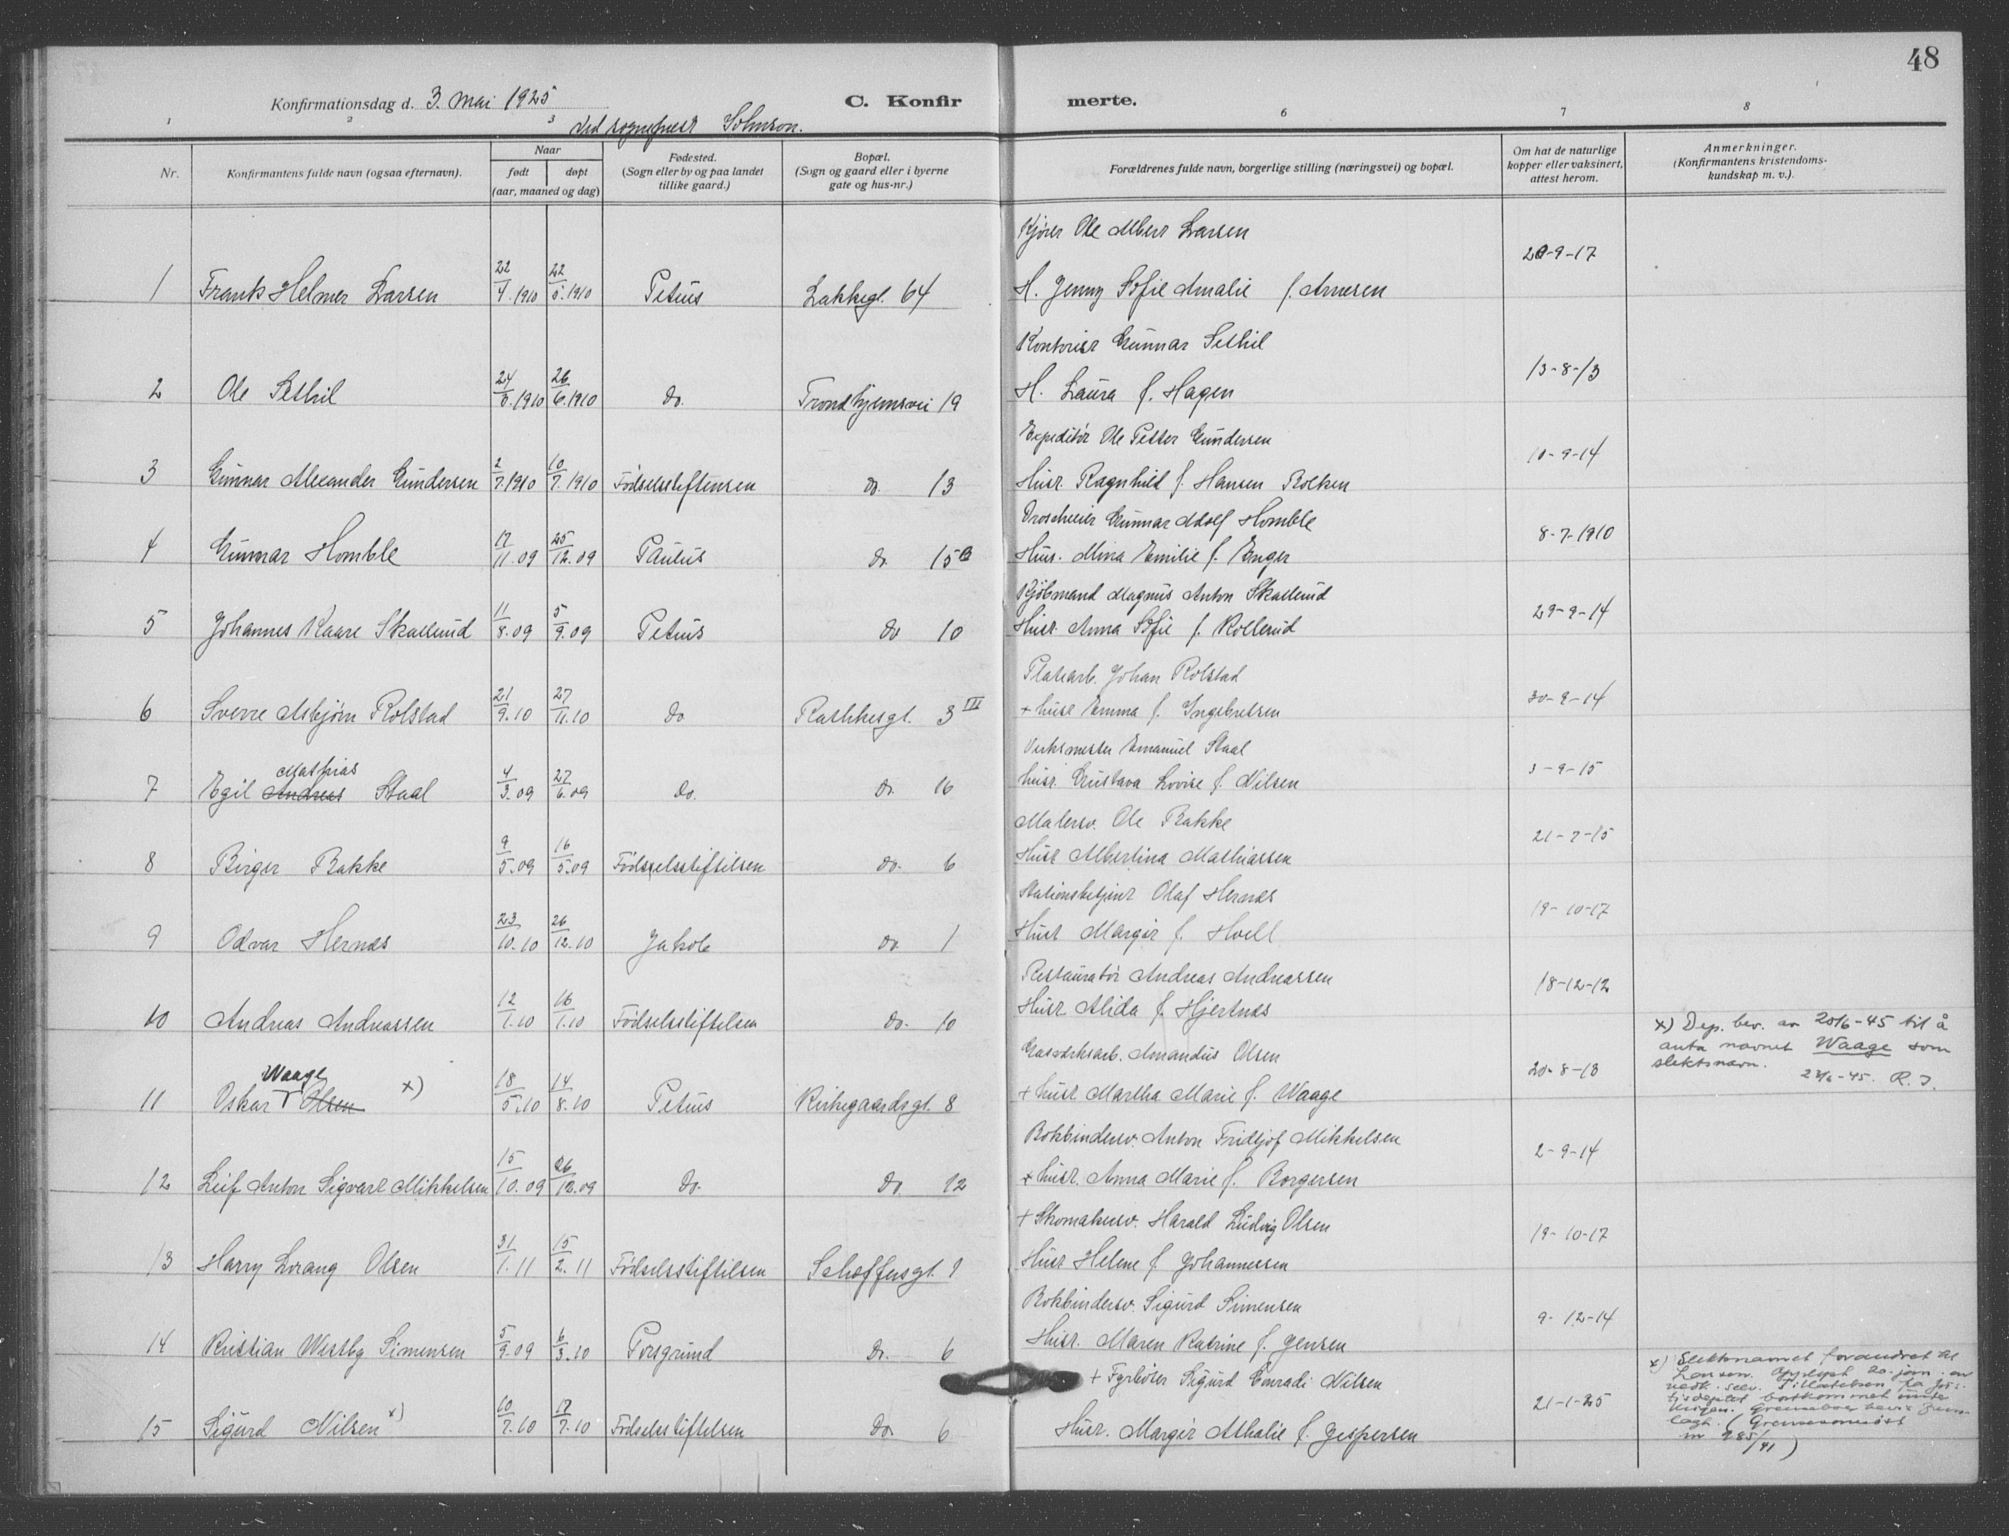 48
Konfirmationsdag d. 3. mai 1925 C. Konfirmerte.
ved sogneprest
1 2 3 6 7 8
Nr. Konfirmantens fulde navn (ogsaa efternavn). Naar født døpt (aar, maaned og dag) Fødested. (Sogn eller by og paa landet tillike gaard.) Bopæl. (Sogn og gaard eller i byerne gate og hus-nr.) Forældrenes fulde navn, borgerlige stilling (næringsvei) og bopæl. Om hat de naturlige kopper eller vaksinert, attest herom. Anmerkninger. (Konfirmantens kristendoms-kundskap m. v.).
Kjører Ole Albert Larsen 20-9-17
1 Frank Helmer Larsen 22/4.1910 22/5.1910 Petrus Lakkegt. 64 H. Jenny Sofie Amalie f. Arnesen
Kontorist Gunnar Sethil 13-8-13
2 Ole Sethil 24/5.1910 26/6.1910 do. Trondhjemsvei 19 H. Laura f. Hagen
Expeditør Ole Petter Gundersen 10-9-14
3 Gunnar Alexander Gundersen 2/7.1910 10/7.1910 Fødselsstiftensen do. 13 Husr. Ragnhild f. Hansen Rolken
Droscheeier Gunnar Adolf Homble 8-7-1910
4 Gunnar Homble 17/11.09 25/12.09 Paulus do. 15B Hus. Mina Emilie f. Enger
Kjøbmand Magnus Anton Skallerud 29-9-14
5 Johannes Kaare Skallerud 11/8.09 5/9.09 Petrus do 10 Husr. Anna Sofie f. Kollerud
Platearb. Johan Rolstad 30-9-14
6 Sverre Asbjørn Rolstad 21/9.10 27/11.10 do Rathkesgt. 3 III + husr Emma f. Ingebretsen
Verksmester Emanuel Staal 3-9-15
Mathias
7 Egil Andreas Staal 4/3.09 27/6.09 do. do. 16 husr. Gustava Lovise f. Nilsen
Malersv. Ole Bakke 21-7-15
8 Birger Bakke 9/5.09 16/5.09 Fødselsstiftelsen do. 6 Husr Albertina Mathiassen
Stationsbetjent Olaf Hernæs 19-10-17
9 Odvar Hernæs 23/10.10 26/12.10 Jakob do 1 Husr Margit f. Hoell
Restauratør Andreas Andreassen 18-12-12
10 Andreas Andreassen 12/1.10 16/1.10 Fødselsstiftelsen do. 10 Husr Alida f. Hjertnæs
x) Dep. bev. av 20/6-45 til å
anta navnet Waage som
slektsnavn.
2/6-45. R. J.
Gasverksarb. Amandus Olsen 20-8-13
Waage
11 Oskar Olsen x) 18/5.10 14/8.10 Petrus Kirkegaardsgt. 8 + husr Martha Marie f. Waage
Bokbindersv. Anton Fridtjof Mikkelsen 2-9-14
12 Leif Anton Sigvart Mikkelsen 15/10.09 26/12.09 do. do. 12 + husr. Anna Marie f. Borgersen
+ Skomakersv. Harald Ludvig Olsen 19-10-17
13 Harry Lorang Olsen 31/1.11 15/2.11 Fødselsstiftelsen Schoffersgt. 1 Husr Helene f. Johannessen
Bokbindersv. Sigurd Simensen 9-12-14
14 Kristian Westby Simensen 5/9.09 6/3.10 Porsgrund do. 6 Husr. Maren Katrine f. Jensen
+ Fyrbøter Sigurd Conradi Nilsen 21-1-25
15 Sigurd Nilsen x) 10/7.10 17/7.10 Fødselsstiftelsen do. 6 Husr. Margit Athalie f. Jespersen
x) Slektsnavnet forandret til
Larsen.
Tillatelsen fra Jus-
bortkommet under
krigen.